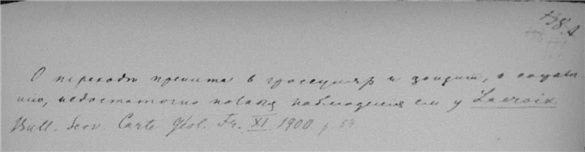 138.A
О переходе пренита в гроссуляр и цоизит, к сожале
нию, недостаточно новые наблюдения см у Lacroix
Bull. Serv. Carte Géol. Fr. XI. 1900 p 54